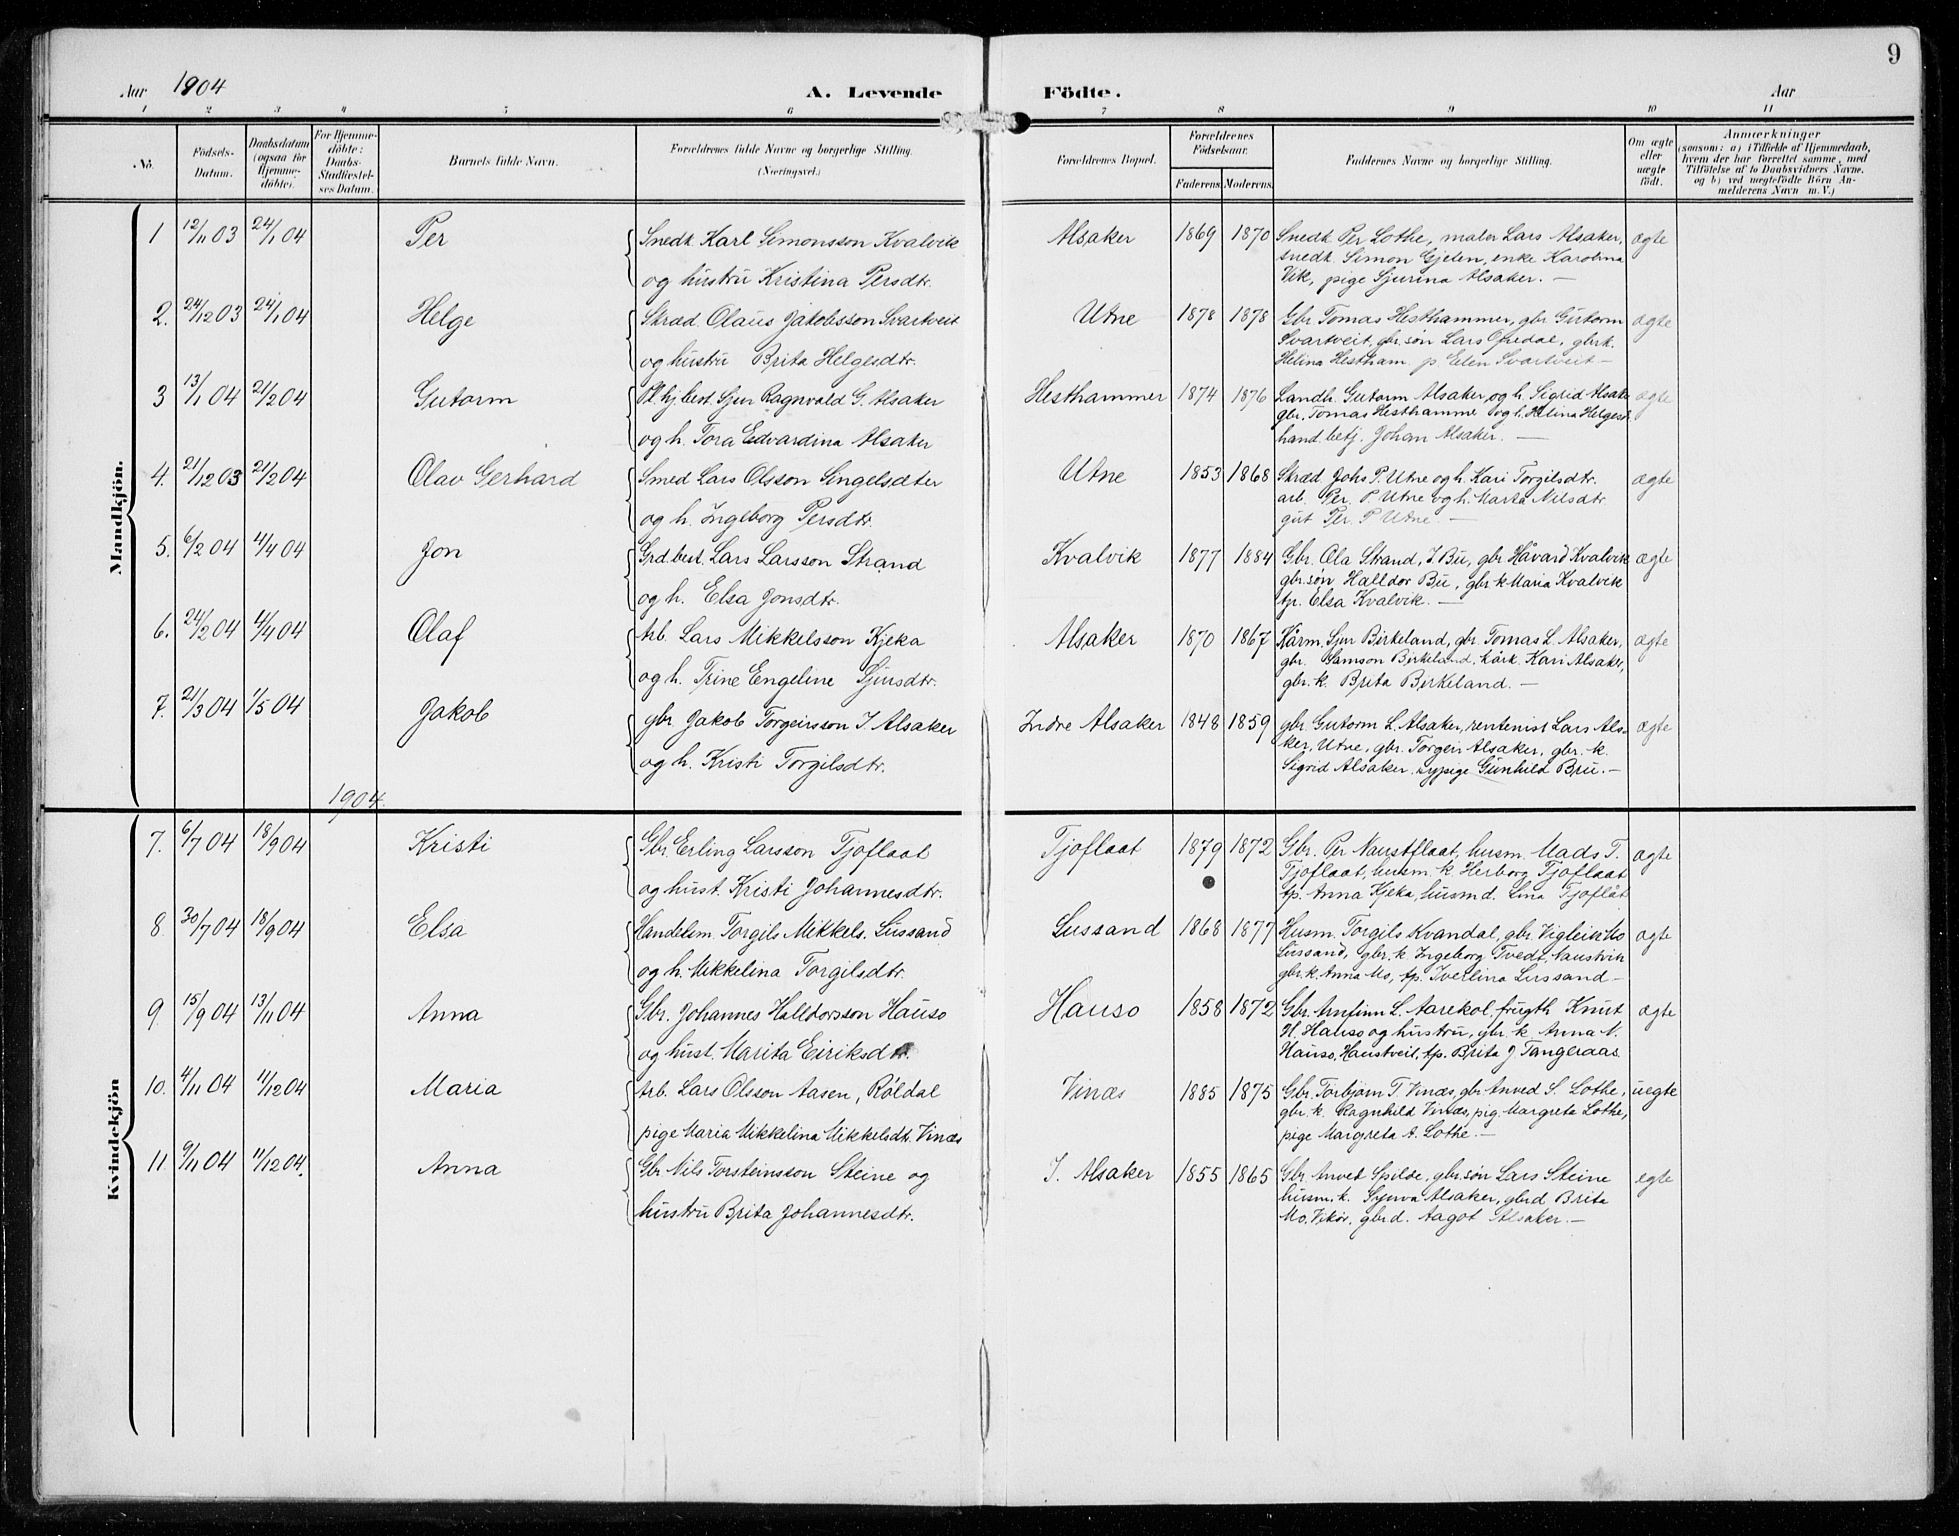 9
Aar 1904 A. Levende Födte. Aar
1 2 3 4 5 6 7 8 9 10 11
No.
Födsels-Datum.
Daabsdatum (ogsaa for Hjemme-döbte).
For Hjemme-döbte: Daabs-Stadfæstel-ses Datum.
Barnets fulde Navn.
Forældrenes fulde Navne og borgerlige Stilling. (Næringsvei.)
Forældrenes Bopæl.
Forældrenes Födselsaar.
Faderens. Moderens.
Faddernes Navne og borgerlige Stilling.
Om ægte eller uægte födt.
Anmærkninger
(saasom: a) i Tilfælde af Hjemmedaab,
hvem der har forrettet samme, med
Tilföielse af to Daabsvidners Navne.
og b) ved uægtefödte Börn An-
melderens Navn m. V.)
Mandkjön.
1 12/11 03 24/1 04 Per Snedk Karl Simonsson Kvalvik Alsaker 1869 1870 Snedk Per Lothe, maler Lars Alsaker, ægte
snedk. Simon Gjelen, enke Karolina
og hustru Kristina Persdtr. Vik, pige Sjurina Alsaker. —
2. 24/12 03 24/1 04 Helge Skræd. Olaus Jakobsson Svartveit Utne 1878 1878 Gbr Tomas Hesthammer, gbr Gutorm ægte
Svartveit, gbr.søn Lars Opedal, gbrk.
og hustru Brita Helgesdtr. Helina Hestham. p Elen Svartveit —
3 13/1 04 21/2 04 Gutorm Pl.hj.best. Sjur Ragnvald G. Alsaker Hesthammer 1874 1876 Landh. Gutorm Alsaker og h. Sigrid Alsaker ægte
gbr. Tomas Hesthamme og h. Helina Helgesd.
og h. Tora Edvardina Alsaker hand.betj. Johan Alsaker. —
4. 21/12 03 21/2 04 Olav Gerhard Smed Lars Olsson Singelsæter Utne 1853 1868 Skræd Johs P. Utne og h. Kari Torgilsdtr. ægte
arb. Per P. Utne og h. Marta Nilsdtr.
og h. Ingeborg Persdtr. gut Per P Utne. —
5. 6/2 04 4/4 04 Jon Grd.best. Lars Larsson Strand Kvalvik 1877 1884 Gbr. Ola Strand, I. Bu, gbr Håvard Kvalvik ægte
gbr.søn Halldor Bu, gbr k Maria Kvalvik
og h. Elsa Jonsdtr. tp. Elsa Kvalvik. —
6. 24/2 04 4/4 04 Olaf Arb. Lars Mikkelsson Kjeka Alsaker 1870 1867 Kårm. Sjur Birkeland, gbr. Tomas L. Alsaker, ægte
gbr. Samson Birkeland, kårk. Kari Alsaker,
og h. Trine Engeline Sjursdtr. gbr. k. Brita Birkeland. —
7. 21/3 04 1/5 04 Jakob gbr Jakob Torgeirsson I. Alsaker Indre Alsaker 1848 1859 gbr. Gutorm L. Alsaker, rentenist Lars Als- ægte
ker, Utne, gbr. Torgeir Alsaker, gbr. k.
og h. Kristi Torgilsdtr. Sigrid Alsaker. sypige Gunhild Bru. —
1904.
Kvindekjön
7. 6/7 04 18/9 04 Kristi Gbr. Erling Larsson Tjoflaat Tjoflaat 1879 1872 Gbr. Per Naustflaat, husm. Mads T. ægte
Tjoflaat, husm. k. Herborg Tjoflaat
og hust. Kristi Johannesdtr. tp. Anna Kjeka, husm d. Lina Tjoflåt
8. 30/7 04 18/9 04 Elsa Handelsm. Torgils Mikkels. Lussand Lussand 1868 1877 Husm. Torgils Kvandal, gbr. Vigleik Mo ægte
Lussand, gbr. k Ingeborg Tvedt, Naustvik
og h. Mikkelina Torgilsdtr. gbr. k. Anna Mo, tp. Iverlina Lussand —
9. 15/9 04 13/11 04 Anna Gbr. Johannes Halldorsson Hauso Hauso 1858 1872 Gbr. Arnfinn L. Aarekol. frugth Knut ægte
H. Hauso og hustru, gbr. k. Anna N.
og hust. Marita Eiriksdtr. Hauso, Haustveit, tp. Brita J Tangeraas.
10. 4/11 04 11/12 04 Maria Arb. Lars Olsson Aasen, Röldal Vinæs 1885 1875 Gbr. Torbjørn T. Vinæs, gbr Anved S. Lothe, uegte
gbr. k. Ragnhild Vinæs, pig. Margreta Lothe,
pige Maria Mikkelina Mikkelsdt. Vinæs pige Margreta A. Lothe. —
11. 9/11 04 11/12 04. Anna Gbr. Nils Torsteinsson Steine og I. Alsaker 1855 1865 Gbr. Anved Spilde, gbr.søn Lars Steine egte
husm. k. Synva Alsaker, gbrd Brita
hustru Brita Johannesdtr. Mo, Vikör, gbr d. Aagot Alsaker. —